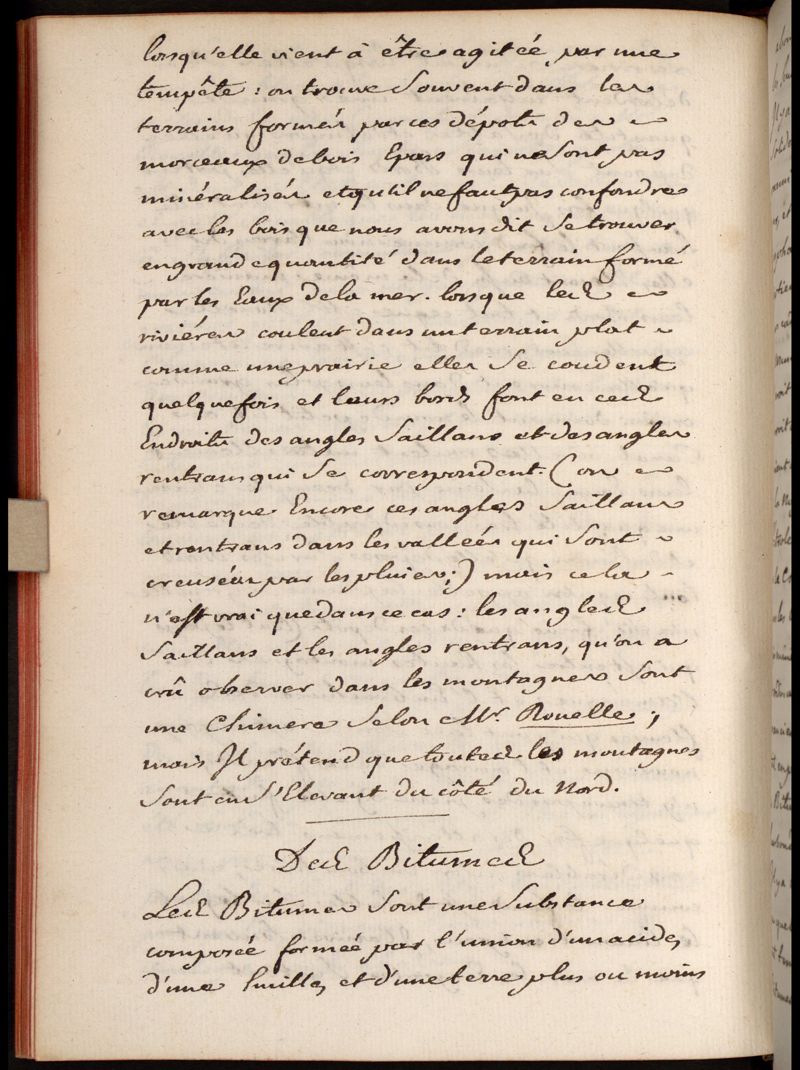 lorsqu'elle vient à être agitée par une
tempête : on trouve Souvent dans les
terrains formés par ces dépots des
morceaux de bois Epars qui ne Sont pas
minéralisés et qu'il ne faut pas confondre
avec les bois que nous avons dit Se trouver
en grande quantité dans le terrain formé
par les Eaux de la mer. lorsque les
riviéres coulent dans un terrain plat
comme une prairie elles Se coudent
quelque fois et leurs bords font en ces
Endroits des angles Saillans et des angles
rentrans qui Se correspondent. (on
remarque Encore ces angles Saillans
et rentrans dans les vallées qui Sont
creusées par les pluies;) mais cela
n'est vrai que dans ce cas : les angles
Saillans et les angles rentrans, qu'on a
crû observer dans les montagnes Sont
une Chimere Selon Mr. Rouelle ;
mais Il prétend que toutes les montagnes
Sont en S'Elevant du côté du Nord.
Des Bitumes
Les Bitumes Sont une Substance
composée formée par l'union d'un acide,
d'une huille, et d'une terre plus ou moins